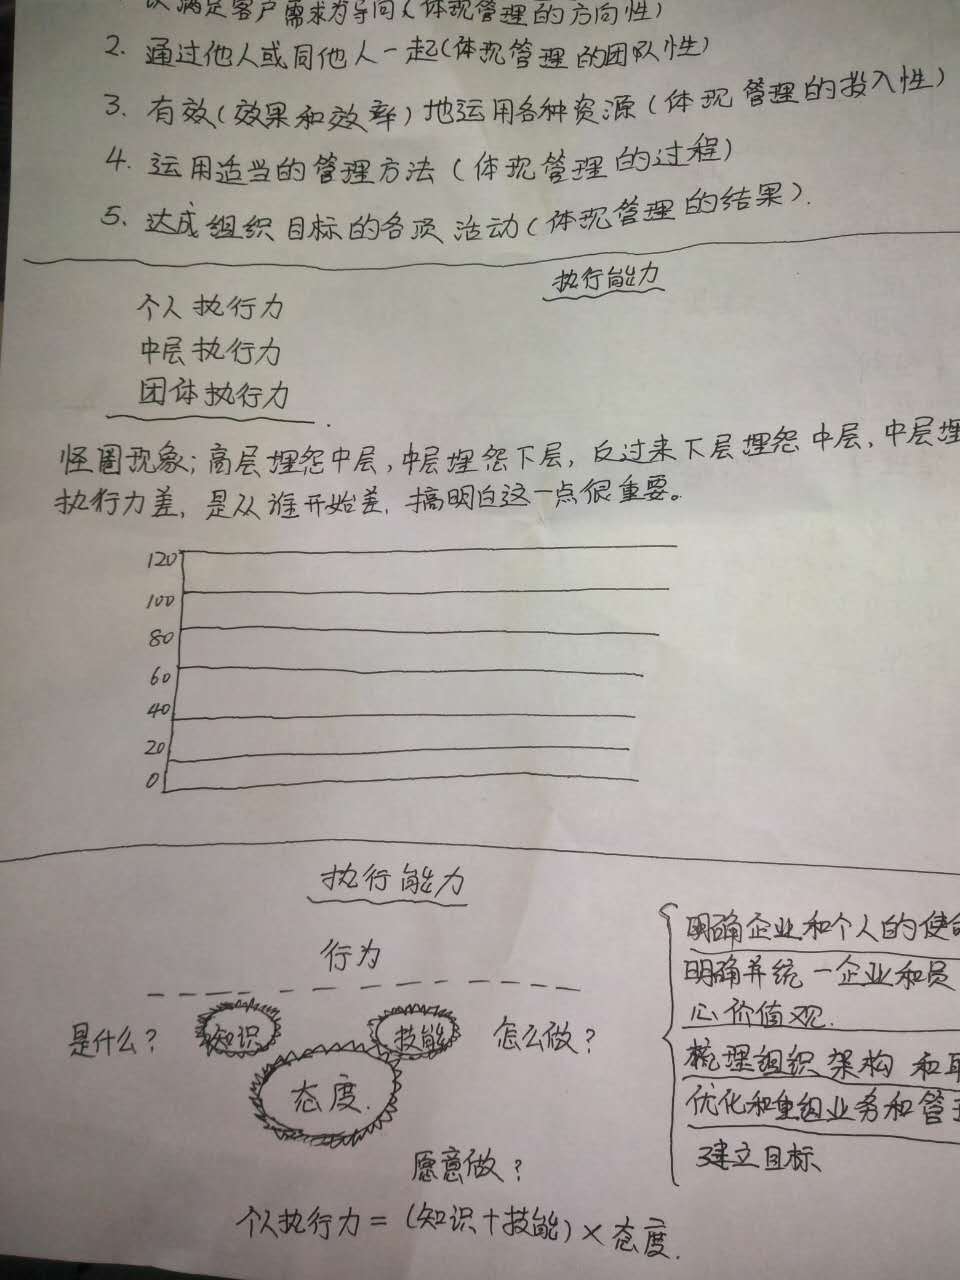 以满足客户需求为导向(体现管理的方向性)
2. 通过他人或同他人一起(体现管理的团队性)
3. 有效(效果和效率)地运用各种资源(体现管理的投入性)
4. 运用适当的管理方法(体现管理的过程)
5. 达成组织目标的各项活动(体现管理的结果).
执行能力
个人执行力
中层执行力
团体执行力
怪圈现象;高层埋怨中层,中层埋怨下层,反过来下层埋怨中层,中层埋
执行力差,是从谁开始差,搞明白这一点很重要。
120
100
80
60
40
20
0
执行能力
行为
是什么? 知识 技能 怎么做?
态度.
愿意做?
个人执行力=(知识+技能)×态度.
明确企业和个人的使
明确并统一企业和员
心价值观.
梳理组织架构和
优化和重组业务和管
建立目标